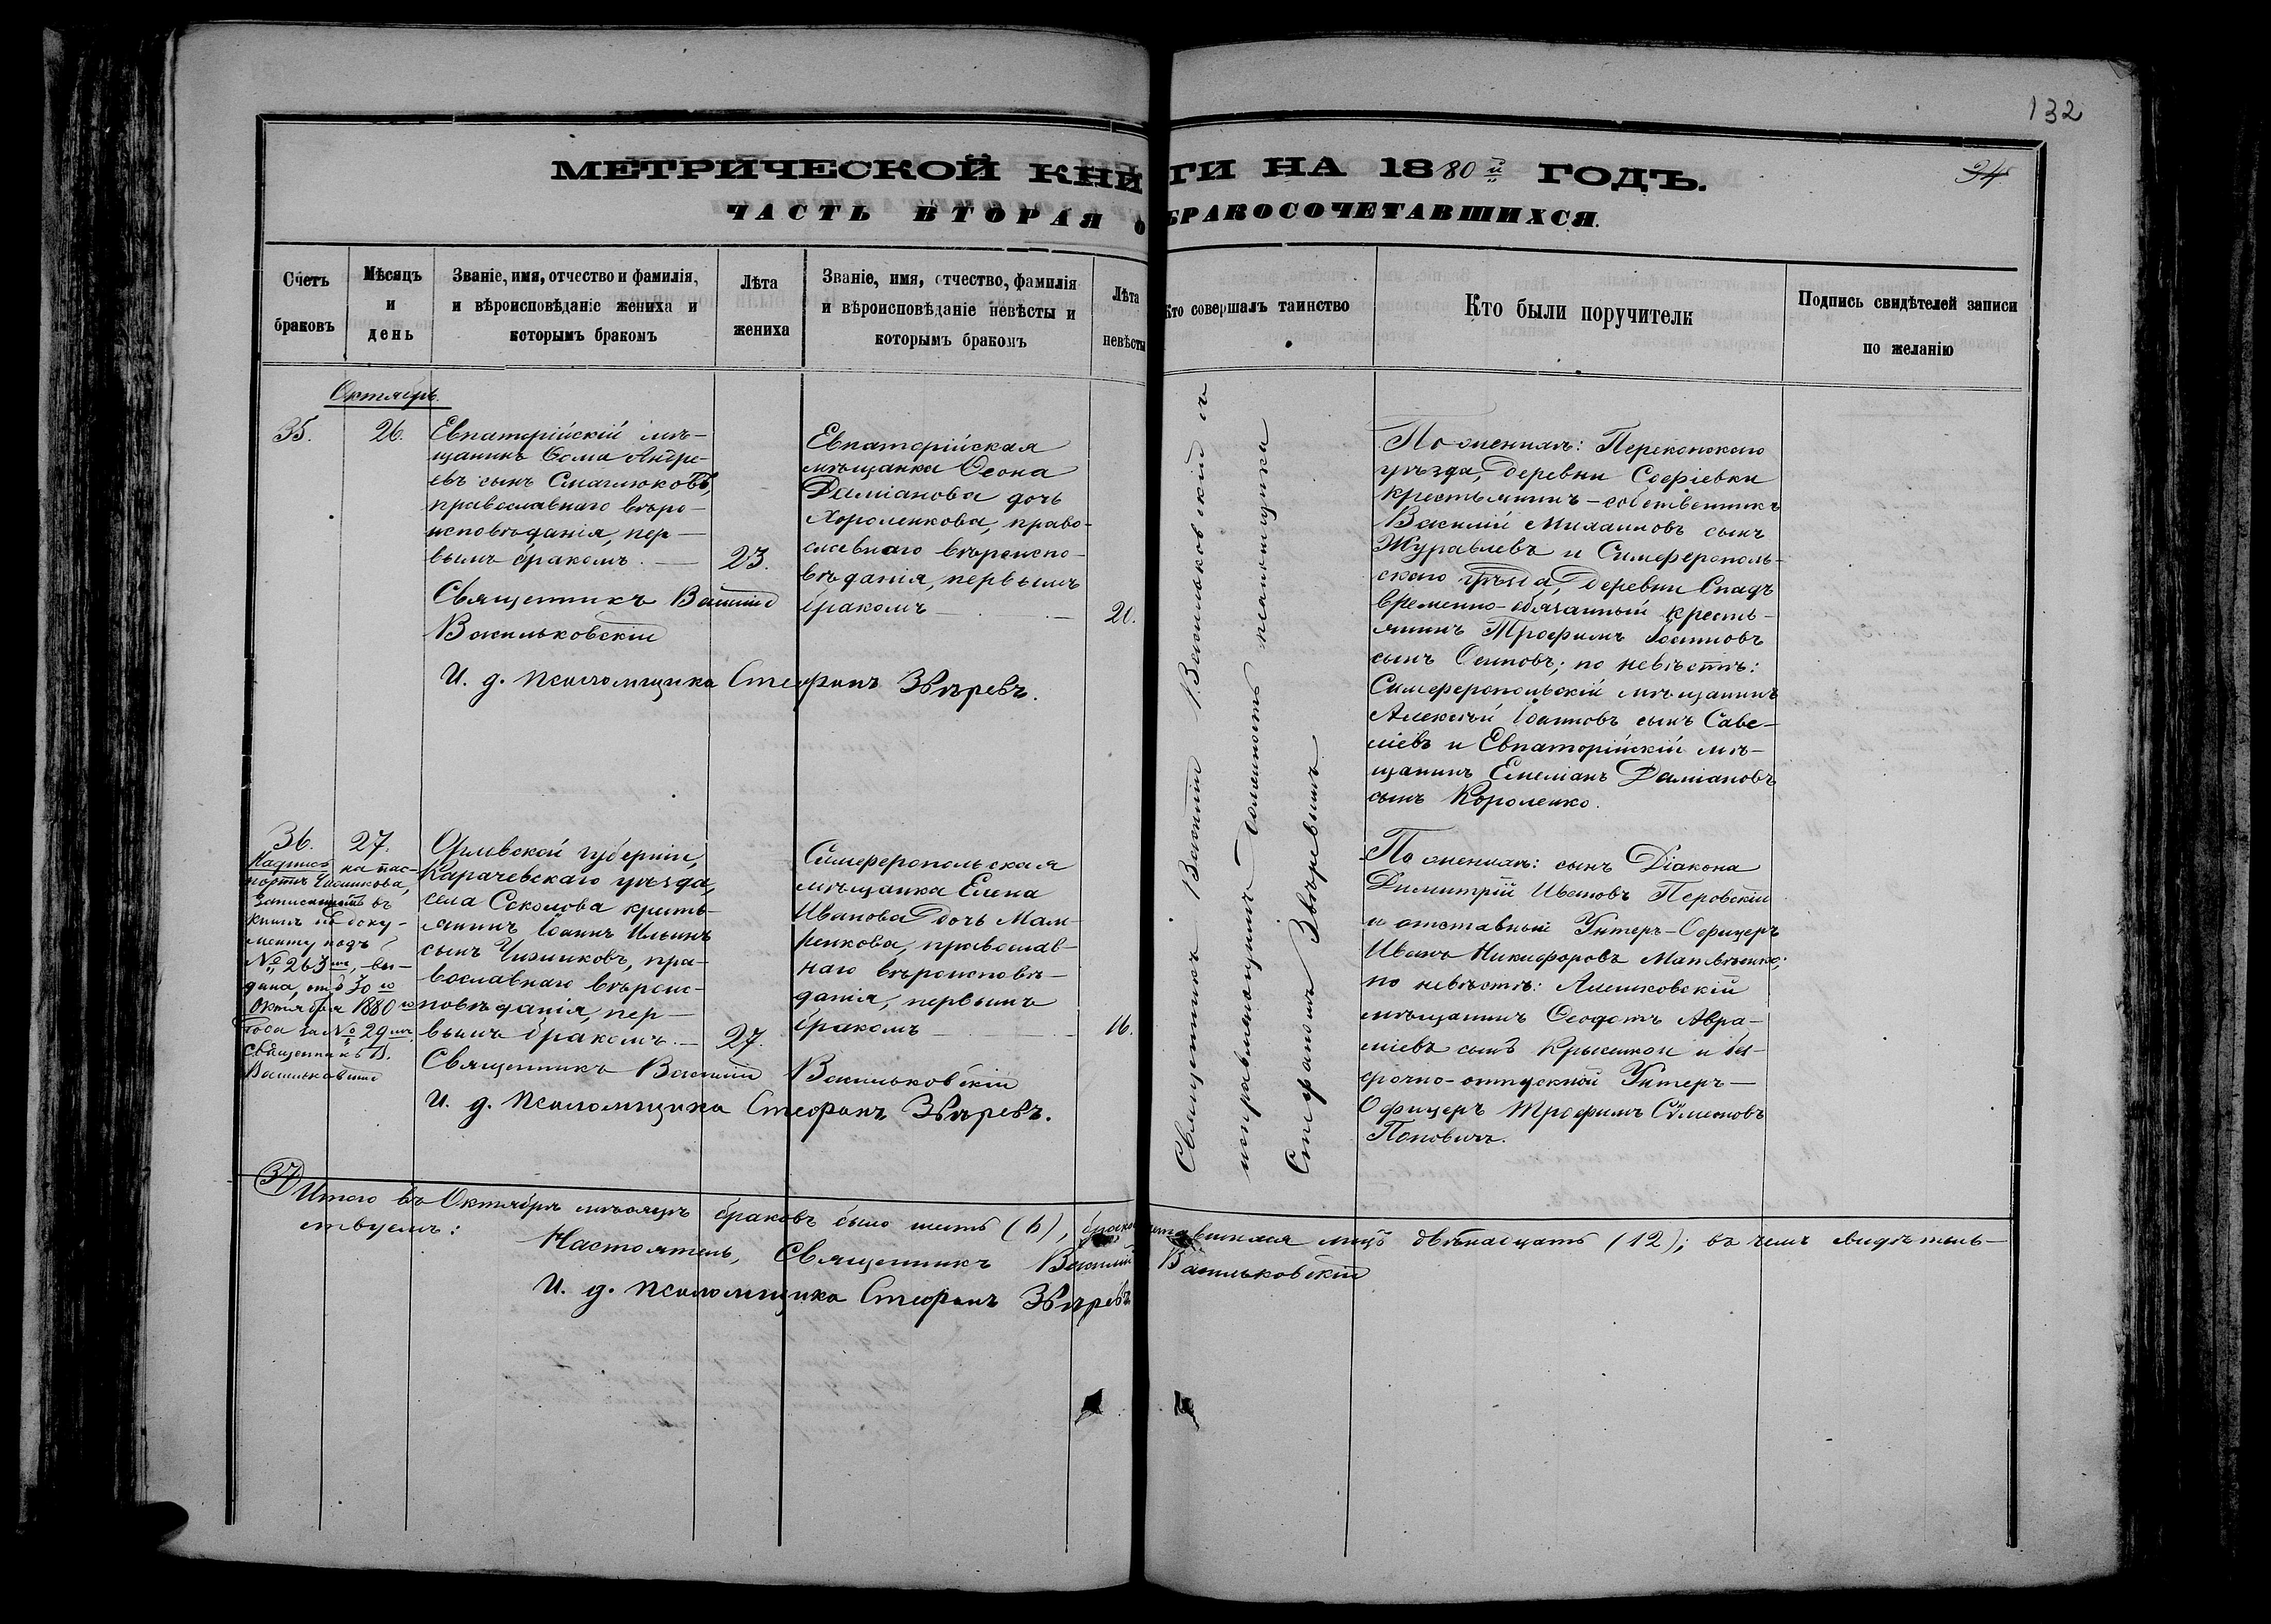 132
34
МЕТРИЧЕСКОЙ КНИГИ НА 1880й ГОДЪ.
ЧАСТЬ ВТОРАЯ О БРАКОСОЧЕТАВШИХСЯ.
Счетъ браковъ
Мѣсяцъ и день
Званіе, имя, отчество и фамилія, и вѣроисповѣданіе жениха и которымъ бракомъ
Лѣта жениха
Званіе, имя, отчество, фамилія и вѣроисповѣданіе невѣсты и которымъ бракомъ
Лѣта невѣсты
Кто совершалъ таинство
Кто были поручители
Подпись свидѣтелей записи по желанію
Октябрь.
35.
26.
Евпаторійскій мѣ-
щанинъ Ѳома Андре-
евъ сынъ
православнаго вѣро-
исповѣданія, пер-
вымъ бракомъ. —
23.
Евпаторійская
мѣщанка Ѳеона
Даміанова дочь
Короленкова, право-
славнаго вѣроиспо-
вѣданія, первымъ
бракомъ —
20.
Священникъ Василій
Васильковскій
И. д. псаломщика Стефанъ Звѣревъ.
Священникъ Василій Васильковскій съ
исправляющимъ должность псаломщика
Стефаномъ Звѣревымъ
По женихѣ: Перекопскаго
уѣзда, деревни Софіевки
крестьянинъ-собственникъ
Василій Михаиловъ сынъ
Журавлевъ и Симферополь-
скаго уѣзда, деревни Спатъ
временно-обязанный кресть-
янинъ Трофимъ Іоанновъ
сынъ Осиповъ; по невѣстѣ:
Симферопольскій мѣщанинъ
Алексѣй Іоанновъ сынъ Саве-
ліевъ и Евпаторійскій мѣ-
щанинъ Емеліанъ Даміановъ
сынъ Короленко.
36.
27.
Надпись на пас-
портѣ Чижикова,
въ
книгѣ по доку-
менту подъ
№ 263мъ, вы-
дана, отъ 30го
Октября 1880го
года за № 29мъ.
Священникъ В.
Васильковскій
Орловской губерніи,
Карачевскаго уѣзда,
села Соколова кресть-
янинъ Іоаннъ Ильинъ
сынъ Чижиковъ, пра-
вославнаго вѣроис-
повѣданія, пер-
вымъ бракомъ. —
27.
Симферопольская
мѣщанка Елена
Иванова дочь Мам-
ренкова, православ-
наго вѣроисповѣ-
данія, первымъ
бракомъ —
16.
Священникъ Василій Васильковскій
И. д. псаломщика Стефанъ Звѣревъ.
По женихѣ: сынъ Діакона
Димитрій Ивановъ Перовскій
и отставный Унтеръ-Офицеръ
Иванъ Никифоровъ Матвѣенко;
по невѣстѣ: Алешковскій
мѣщанинъ Ѳеодотъ Авра-
міевъ сынъ и без-
срочно-отпускной Унтеръ-
Офицеръ Трофимъ Сѵмеоновъ
Поповичъ.
37
Итого въ Октябрѣ мѣсяцѣ браковъ было шесть (6), бракосочетавшихся лицъ двѣнадцать (12); въ чемъ свидѣтель-
ствуемъ:
Настоятель, Священникъ Василій Васильковскій
И. д. псаломщика Стефанъ Звѣревъ